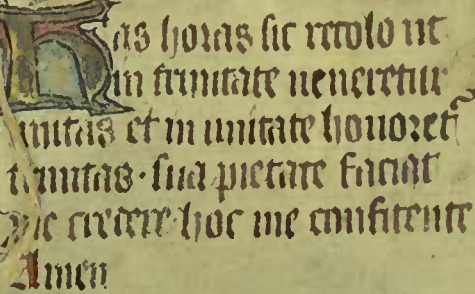 Has horas sic recolo ut
in trinitate ueneretur
unitas et in unitate honoret᷑
trinitas · sua pietate faciat
me credere · hoc me confitente
Amen